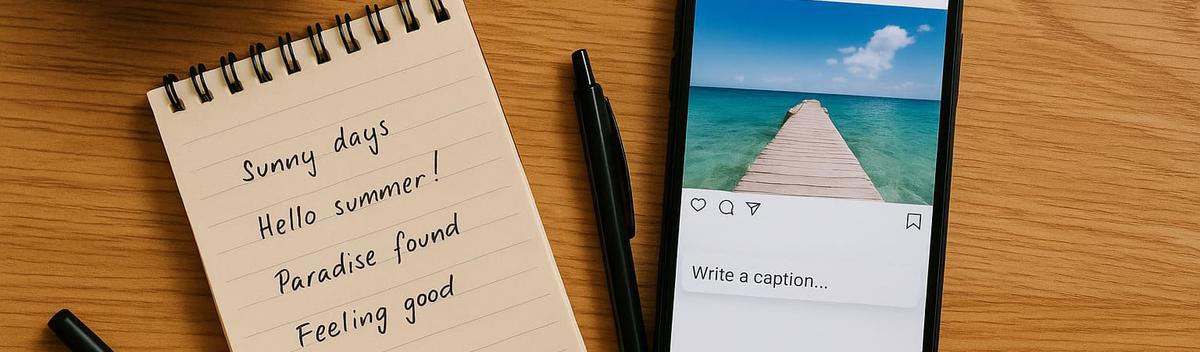 Sunny days
Hello summer!
Paradise found
Feeling good
Write a caption...